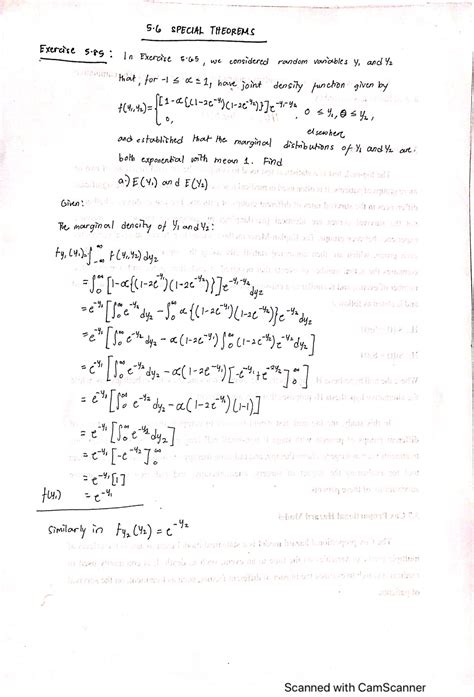 5.6 SPECIAL THEOREMS
Exercise 5.85 : In Exercise 5.65, we considered random variables Y₁ and Y₂
that, for -1 ≤ α ≤ 1, have joint density function given by
f(y₁,y₂)={[1-α{(1-2e^-y₁)(1-2e^-y₂)}]e^-y₁-y₂, 0 ≤ y₁, 0 ≤ y₂,
0, elsewhere
and established that the marginal distributions of Y₁ and Y₂ are
both exponential with mean 1. Find
a.) E(Y₁) and E(Y₂)
Given:
The marginal density of Y₁ and Y₂:
fy₁(y₁)=∫_-∞^∞ f(y₁,y₂)dy₂
=∫_0^∞ [1-α{(1-2e^-y₁)(1-2e^-y₂)}]e^-y₁-y₂ dy₂
=e^-y₁[∫_0^∞ e^-y₂ dy₂ - ∫_0^∞ α{(1-2e^-y₁)(1-2e^-y₂)}e^-y₂ dy₂
=e^-y₁[∫_0^∞ e^-y₂ dy₂ - α(1-2e^-y₁)∫_0^∞ (1-2e^-y₂)e^-y₂ dy₂]
=e^-y₁[∫_0^∞ e^-y₂ dy₂ - α(1-2e^-y₁)[-e^-y₂+e^-2y₂]_0^∞]
=e^-y₁[∫_0^∞ e^-y₂ dy₂ - α(1-2e^-y₁)(1-1)]
=e^-y₁[∫_0^∞ e^-y₂ dy₂]
=e^-y₁[-e^-y₂]_0^∞
=e^-y₁[1]
f(y₁) =e^-y₁
Similarly in fy₂(y₂)=e^-y₂
Scanned with CamScanner